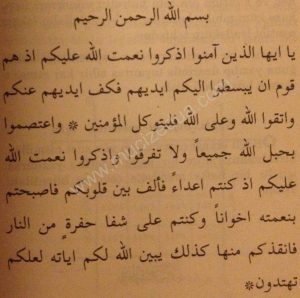 بسم الله الرحمن الرحيم
يا ايها الذين آمنوا اذكروا نعمت الله عليكم اذ هم
قوم ان يبسطوا اليكم ايديهم فكف ايديهم عنكم
واتقوا الله وعلى الله فليتوكل المؤمنين * واعتصموا
بحبل الله جميعاً ولا تفرقوا واذكروا نعمت الله
عليكم اذ كنتم اعداءً فألف بين قلوبكم فاصبحتم
بنعمته اخواناً وكنتم على شفا حفرةٍ من النار
فانقذكم منها كذلك يبين الله لكم اياته لعلكم
تهتدون*